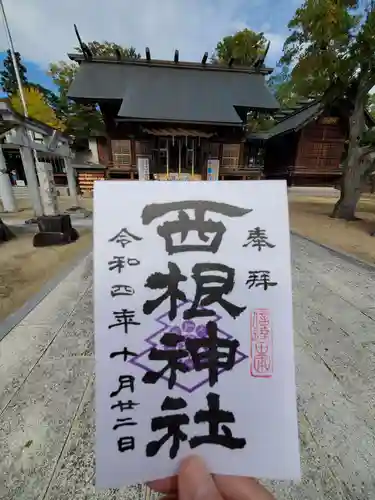 奉拝
西根神社
令和四年十月廿二日